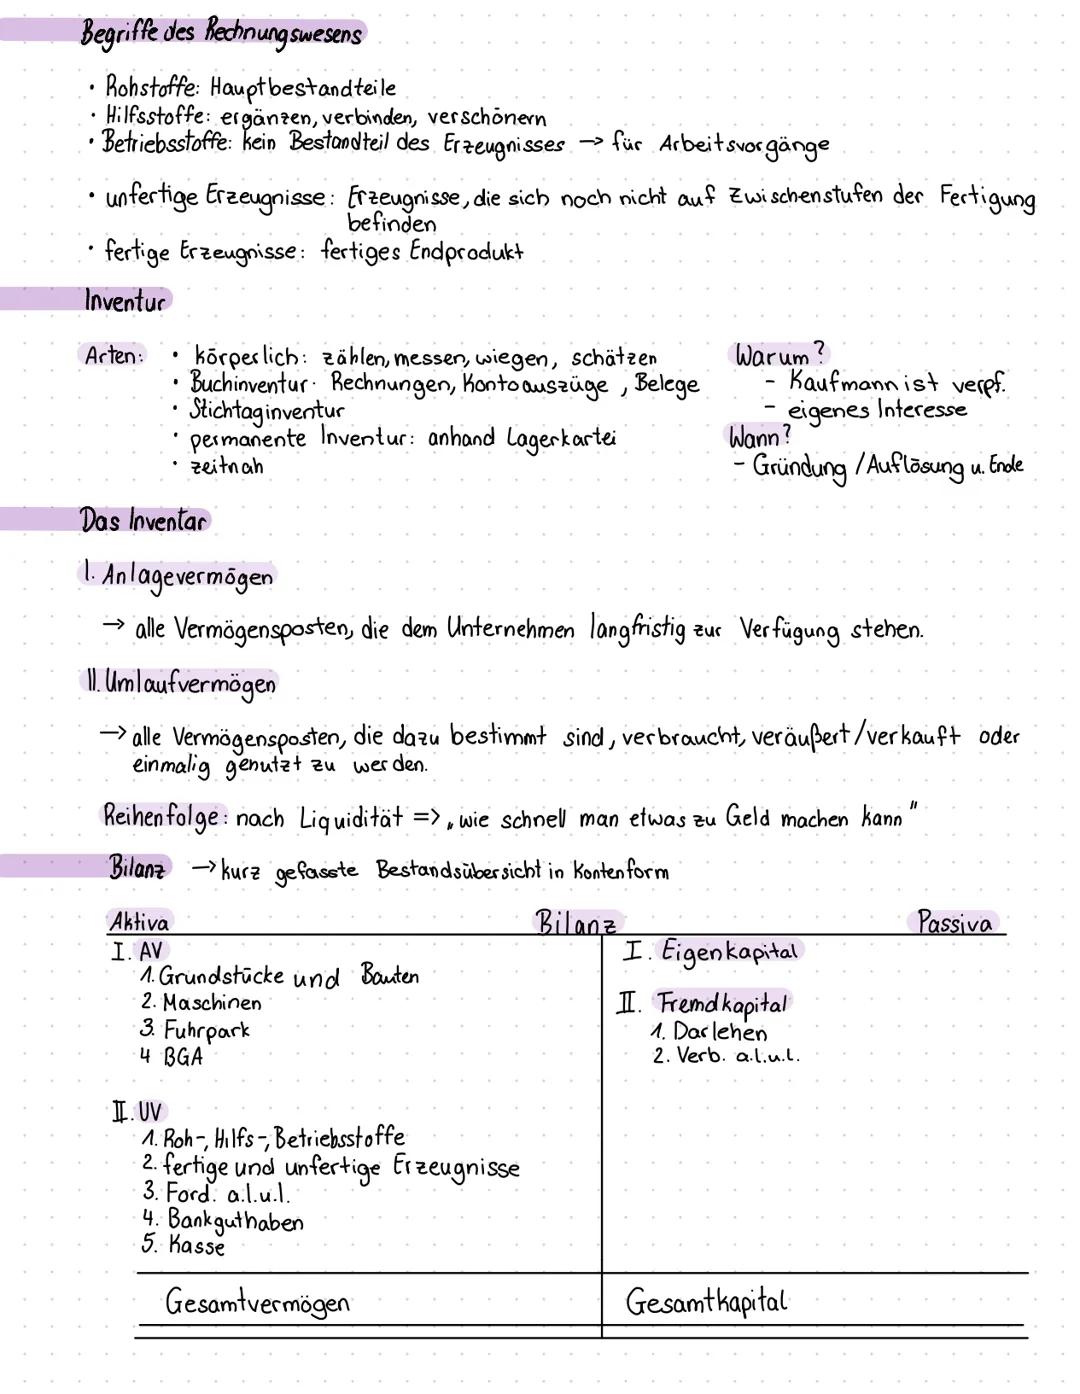 Begriffe des Rechnungswesens
· Rohstoffe: Hauptbestandteile
· Hilfsstoffe: ergänzen, verbinden, verschönern
· Betriebsstoffe: kein Bestandteil des Erzeugnisses → für Arbeitsvorgänge
· unfertige Erzeugnisse: Erzeugnisse, die sich noch nicht auf Zwischenstufen der Fertigung
befinden
· fertige Erzeugnisse: fertiges Endprodukt
Inventur
Arten: · körperlich: zählen, messen, wiegen, schätzen
· Buchinventur: Rechnungen, Kontoauszüge, Belege
· Stichtaginventur
· permanente Inventur: anhand Lagerkartei
· zeitnah
Warum?
- Kaufmann ist verpf.
- eigenes Interesse
Wann?
- Gründung / Auflösung u. Ende
Das Inventar
I. Anlagevermögen
→ alle Vermögensposten, die dem Unternehmen langfristig zur Verfügung stehen.
II. Umlaufvermögen
→ alle Vermögensposten, die dazu bestimmt sind, verbraucht, veräußert/verkauft oder
einmalig genutzt zu werden.
Reihenfolge: nach Liquidität => „wie schnell man etwas zu Geld machen kann"
Bilanz → kurz gefasste Bestandsübersicht in Kontenform
Aktiva Bilanz Passiva
I. AV
1. Grundstücke und Bauten
2. Maschinen
3. Fuhrpark
4 BGA
II. UV
1. Roh-, Hilfs-, Betriebsstoffe
2. fertige und unfertige Erzeugnisse
3. Ford. a.l.u.l.
4. Bankguthaben
5. Kasse
Gesamtvermögen
I. Eigenkapital
II. Fremdkapital
1. Darlehen
2. Verb. a.l.u.l.
Gesamtkapital